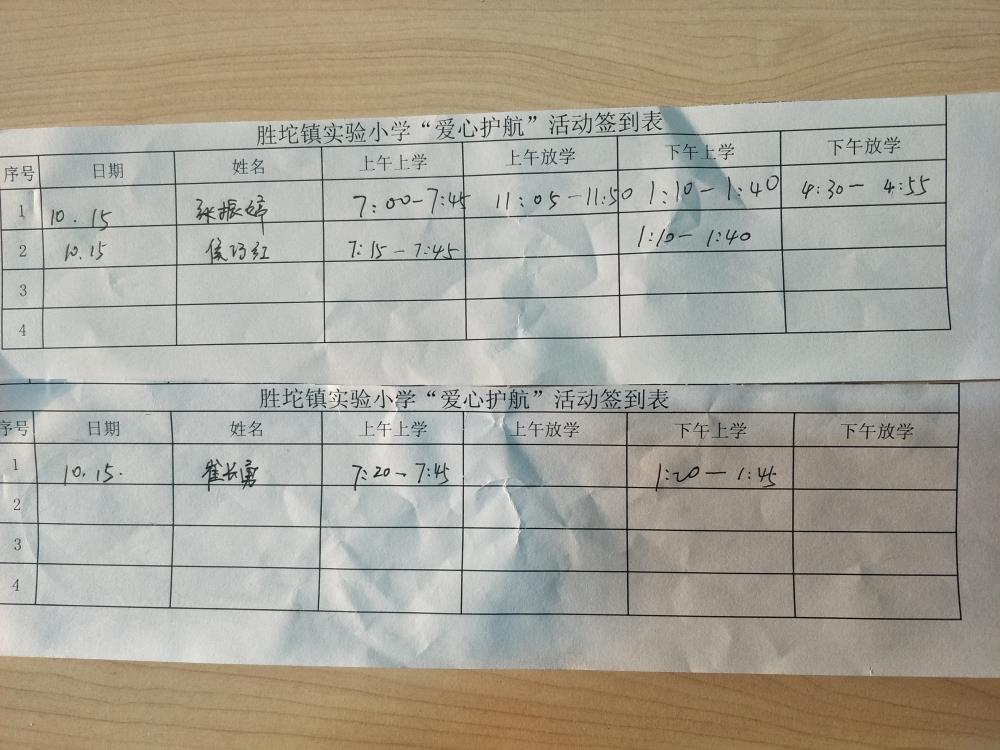 胜坨镇实验小学“爱心护航”活动签到表
序号 日期 姓名 上午上学 上午放学 下午上学 下午放学
1 10.15 张振婷 7:00-7:45 11:05-11:50 1:10-1:40 4:30-4:55
2 10.15 侯巧红 7:15-7:45 1:10-1:40
3
4
胜坨镇实验小学“爱心护航”活动签到表
序号 日期 姓名 上午上学 上午放学 下午上学 下午放学
1 10.15. 崔长勇 7:20-7:45 1:20-1:45
2
3
4